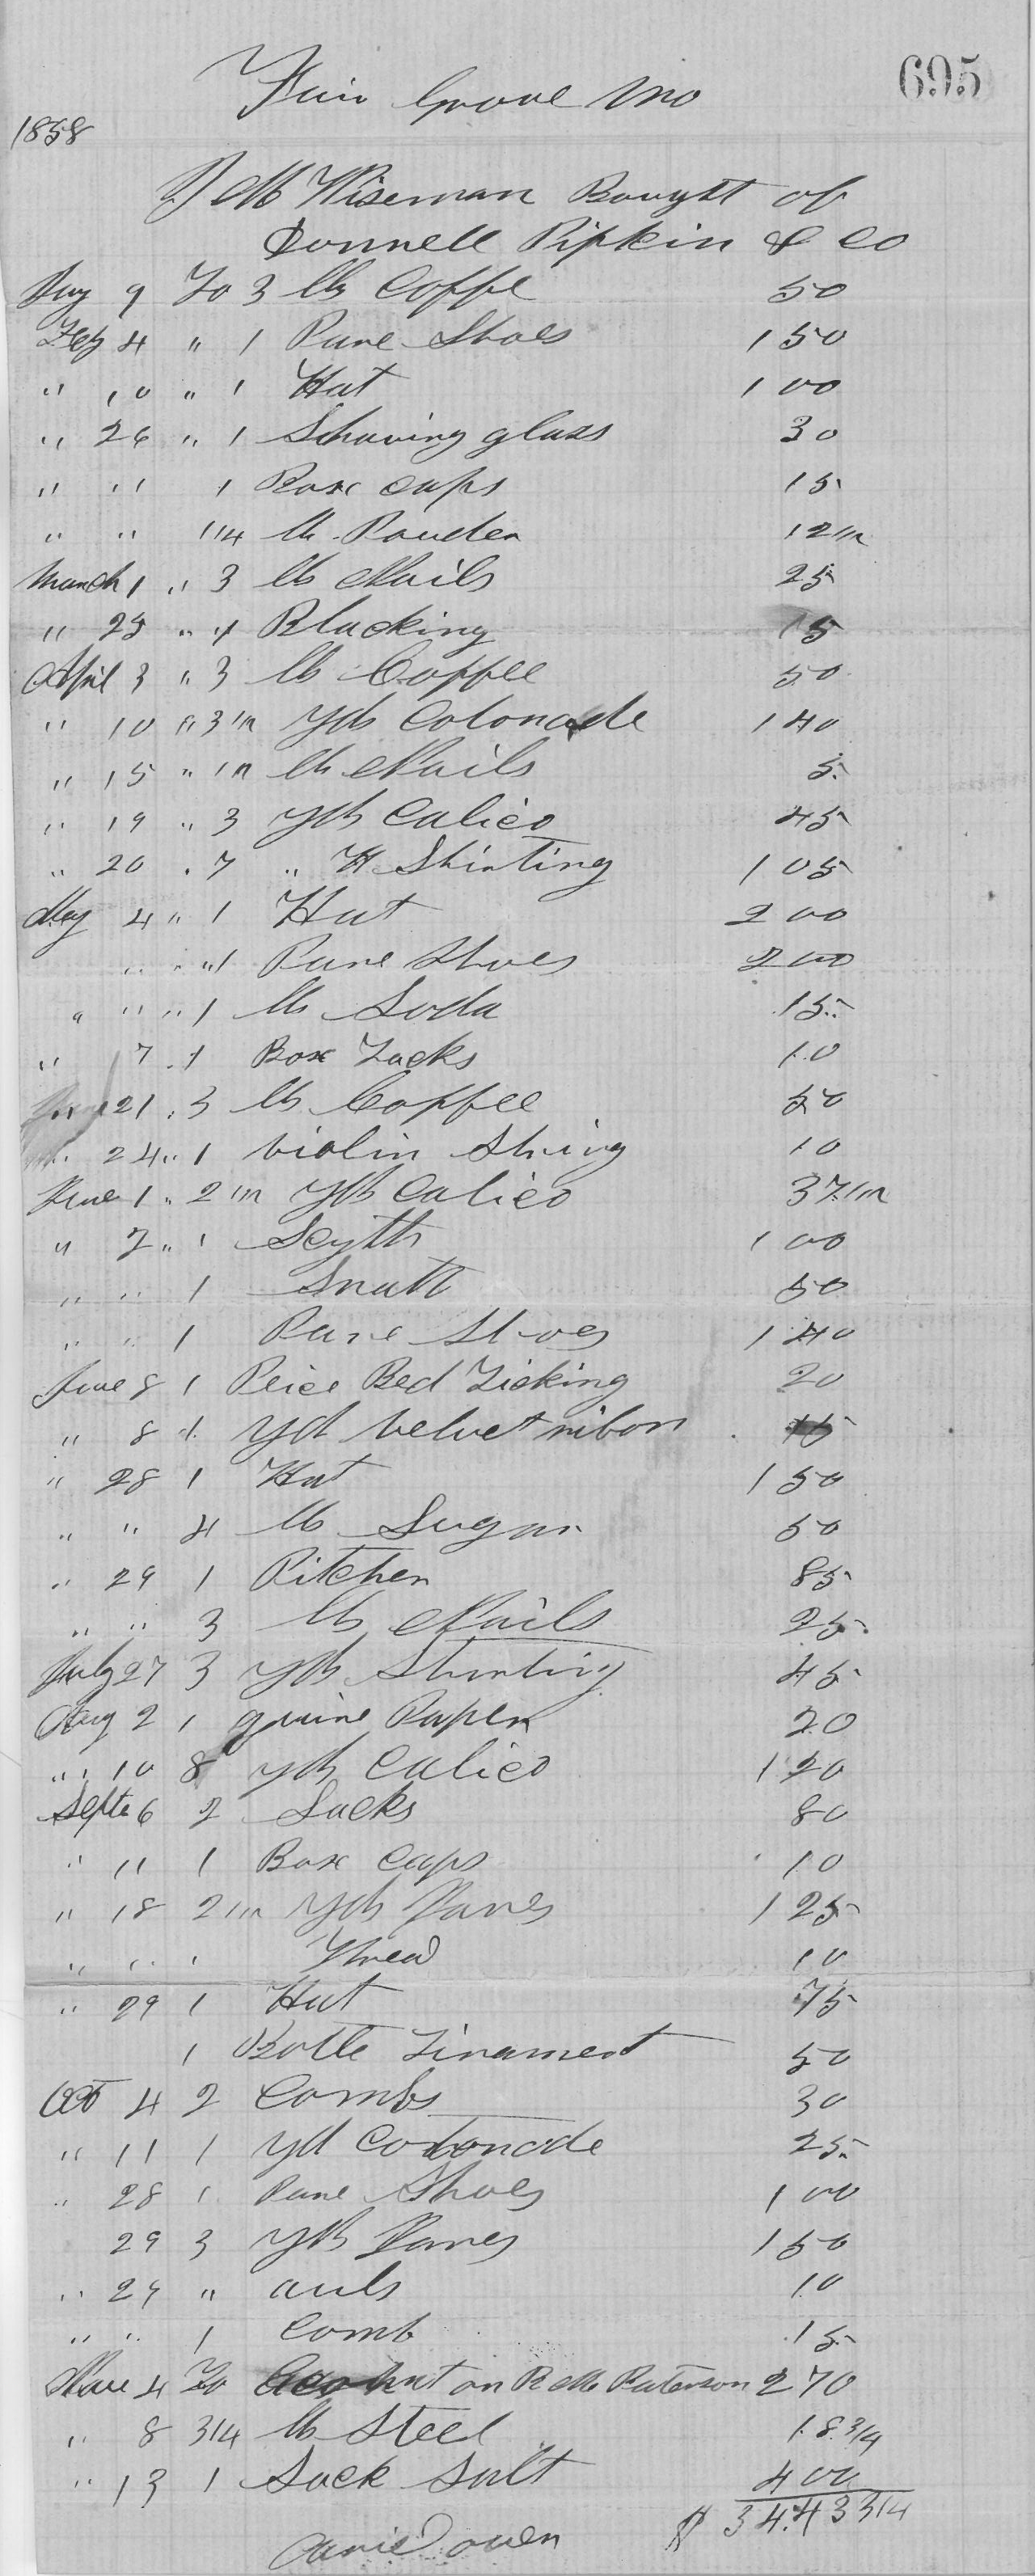 695
Fair Grove Mo
1858
J M Wiseman Bought of
Donnell Pipkin & Co
Jay 9 To 3 lb Coffe 50
Feb 4 " 1 Pare Shoes 1 50
" 10 " 1 Hat 1 00
" 26 " 1 Schaving glass 30
" " 1 Box caps 15
" " 1/4 lb Pouder 12 1/2
March 1 " 3 lb Nails 25
" 25 " 1 Blacking 15
April 3 " 3 lb Coffee 50
" 10 " 3 1/2 yds Cotonade 1 40
" 15 " 1/2 lb Nails 5
" 19 " 3 yds Calico 45
" 20 " 7 " H Shirting 1 05
May 4 " 1 Hat 2 00
" " 1 Pare Shoes 2 00
" " " 1 lb Soda 15
" 7 " 1 Box Tacks 10
21 " 3 lb Coffee 50
" 24 " 1 violin String 10
June 1 " 2 1/2 yds Calico 37 1/2
" 7 " 1 Scyth 1 00
" " 1 Snath 50
" " 1 Pare Shoes 1 40
June 8 1 Peice Bed Ticking 20
" 8 1 yd velvet ribon 15
" 28 1 Hat 1 50
" " 4 lb Sugar 50
" 29 1 Pitcher 85
" " 3 lb Nails 25
July 27 3 yds Shirting 45
Aug 2 1 quire Paper 20
" 10 8 yds Calico 1 20
Septe 6 2 Sacks 80
" 11 1 Box Caps 10
" 18 2 1/2 yds Janes 1 25
" " " Thread 10
" 29 1 Hat 75
1 Botle Linament 50
Oct 4 2 Combs 30
" 11 1 yd Cotonade 25
" 28 1 Pare Shoes 1 00
29 3 yds Janes 1 50
" 29 " auls 10
" " 1 Comb 15
Nove 4 To Acount on R M Paterson 2 70
" 8 3/4 lb Steel 18 3/4
" 13 1 Sack Salt 4 00
$ 34.43 3/4
owen